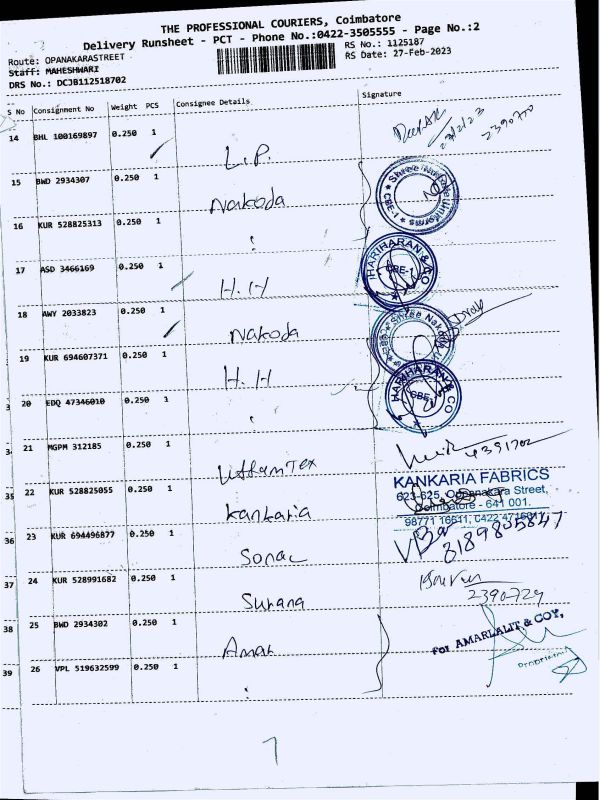 THE PROFESSIONAL COURIERS, Coimbatore
Delivery Runsheet - PCT - Phone No.:0422-3505555 - Page No.:2
Route: OPANAKARASTREET
RS No.: 1125187
Staff: MAHESHWARI
RS Date: 27-Feb-2023
DRS No.: DCJB112518702
S No Consignment No Weight PCS Consignee Details Signature
14 BHL 100169897 0.250 1 L.P. 2390770
15 BWD 2934307 0.250 1 Nakoda
16 KUR 528825313 0.250 1
17 ASD 3466169 0.250 1 H.H HARIHARAN & CO CBE-1
18 AWY 2033823 0.250 1 Nakoda
19 KUR 694607371 0.250 1 H.H
3 20 EDQ 47346010 0.250 1 HARIHARAN & CO CBE-1
34 21 MGPM 312185 0.250 1 UttamTex
35 22 KUR 528825055 0.250 1 Kankaria
KANKARIA FABRICS
623-625, Oppanakara Street,
Coimbatore - 641 001.
98771 16611, 0422 4716011
36 23 KUR 694496877 0.250 1 Sonal
37 24 KUR 528991682 0.250 1 Surana 2390729
38 25 BWD 2934302 0.250 1 Amar
For AMARLALIT & COY,
39 26 VPL 519632599 0.250 1
7